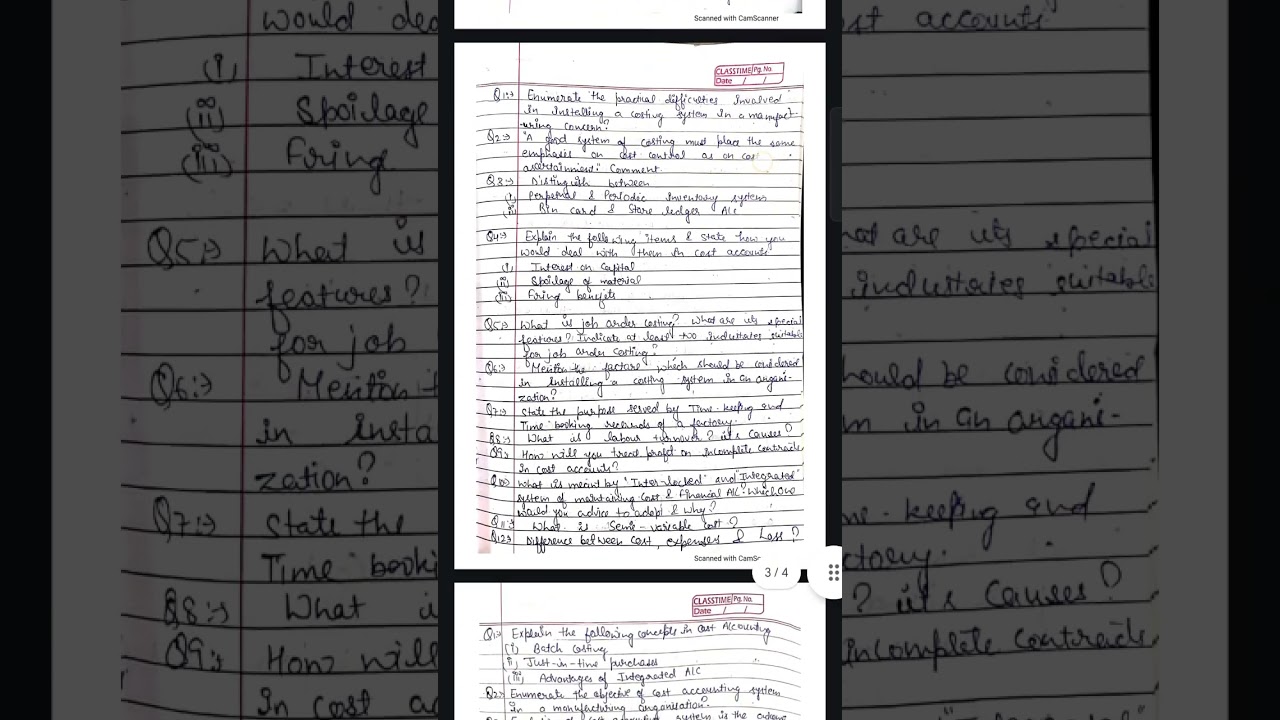 Scanned with CamScanner
CLASSTIME Pg. No.
Date / /
Q1:-> Enumerate the practical difficulties involved
in installing a costing system in a manufact-
uring concern?
Q2:-> "A good system of costing must place the same
emphasis on cost control as on cos
ascertainment." Comment.
Q3:-> Distinguish between
(i) Perpetual & Periodic inventory system
(ii) Bin card & Store ledger A/c
Q4:-> Explain the following items & state how you
would deal with them in cost accounts
(i) Interest on Capital
(ii) Spoilage of material
(iii) Firing benefits
Q5:-> What is job order costing? What are its special
features? Indicate at least two industates suitable
for job order costing?
Q6:-> Mention the factors which should be considered
in installing a costing system in an organi-
zation?
Q7:-> State the purpose served by Time-keeping and
Time booking records of a factory.
Q8:-> What is labour turnover? it's Causes?
Q9:-> How will you treat profit on incomplete contracts
in cost accounts?
Q10:-> What is meant by "Inter-locked" and "Integrated"
system of maintaining Cost & Financial A/C. Which one
would you advice to adopt & Why?
Q11:-> What is Semi-variable cost?
Q12:-> Difference between Cost, expenses & Loss?
Scanned with CamSc
3/4
CLASSTIME Pg. No.
Date / /
Q1:-> Explain the following concepts in Cost Accounting
(i) Batch Costing
(ii) Just-in-time purchases
(iii) Advantages of Integrated A/C
Q2:-> Enumerate the objective of cost accounting system
in a manufacturing organisation?
system is the
would dea
(i) Interest
(ii) Spoilage
(iii) Firing
Q5:-> What is
features?
for job
Q6:-> Mention t
in insta
zation?
Q7:-> State the
Time booki
Q8:-> What i
Q9:-> How will
in cost a
cost accounts
hat are its special
industates suitable
hould be considered
m in an organi-
me-keeping and
actory.
? it's Causes?
incomplete contracts